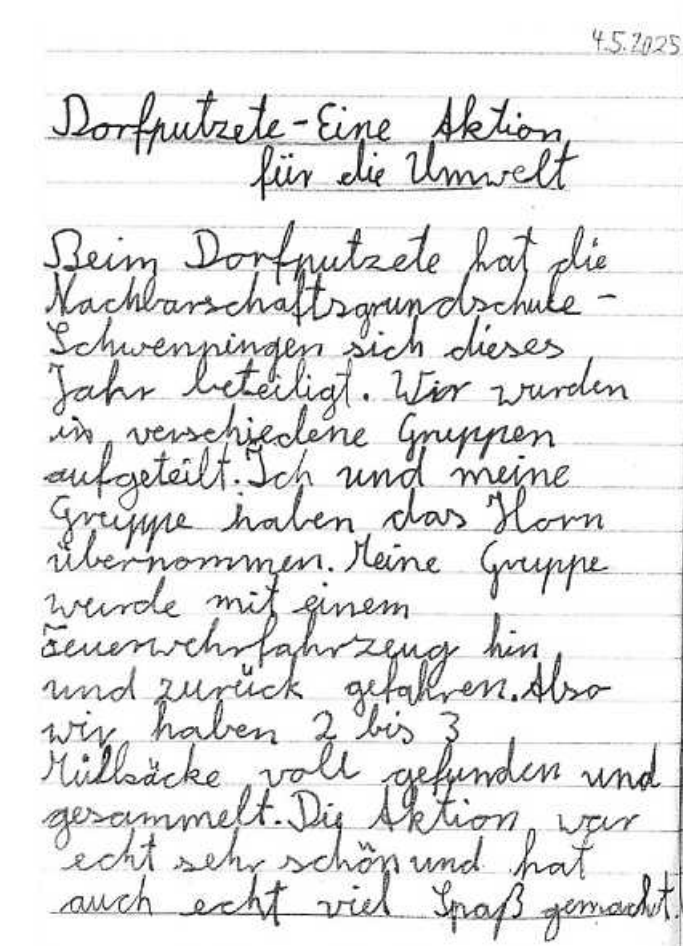 4.5.2025
Dorfputzete-Eine Aktion
für die Umwelt
Beim Dorfputzete hat die
Nachbarschaftsgrundschule-
Schwenningen sich dieses
Jahr beteiligt. Wir wurden
in verschiedene Gruppen
aufgeteilt. Ich und meine
Gruppe haben das Horn
übernommen. Meine Gruppe
wurde mit einem
Feuerwehrfahrzeug hin
und zurück gefahren. Also
wir haben 2 bis 3
Müllsäcke voll gefunden und
gesammelt. Die Aktion war
echt sehr schön und hat
auch echt viel Spaß gemacht.